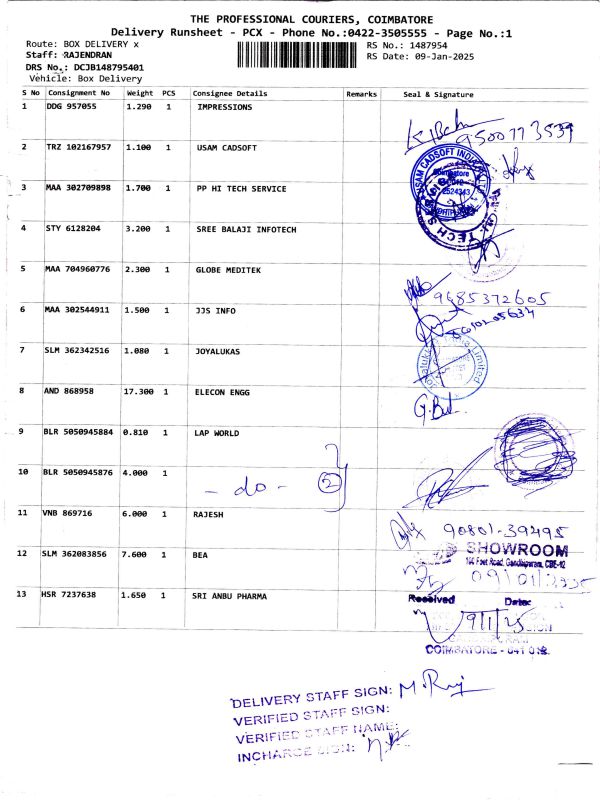 THE PROFESSIONAL COURIERS, COIMBATORE
Delivery Runsheet - PCX - Phone No.:0422-3505555 - Page No.:1
Route: BOX DELIVERY x
RS No.: 1487954
Staff: RAJENDRAN
RS Date: 09-Jan-2025
DRS No.: DCJB148795401
Vehicle: Box Delivery
S No Consignment No Weight PCS Consignee Details Remarks Seal & Signature
1 DDG 957055 1.290 1 IMPRESSIONS
9500773539
2 TRZ 102167957 1.100 1 USAM CADSOFT
USAM CADSOFT INDIA
Coimbatore
2524343
3 MAA 302709898 1.700 1 PP HI TECH SERVICE
4 STY 6128204 3.200 1 SREE BALAJI INFOTECH
5 MAA 704960776 2.300 1 GLOBE MEDITEK
9685372605
6 MAA 302544911 1.500 1 JJS INFO
7 SLM 362342516 1.080 1 JOYALUKAS
8 AND 868958 17.300 1 ELECON ENGG
9 BLR 5050945884 0.810 1 LAP WORLD
10 BLR 5050945876 4.000 1 - do - 2
11 VNB 869716 6.000 1 RAJESH
90801-39495
12 SLM 362083856 7.600 1 BEA
SHOWROOM
Feet Road, Gandhipuram, CBE-12
09/01/2025
13 HSR 7237638 1.650 1 SRI ANBU PHARMA
Received Date:
9/1/25
COIMBATORE - 641 012.
DELIVERY STAFF SIGN:
VERIFIED STAFF SIGN:
VERIFIED STAFF NAME:
INCHARGE SIGN: